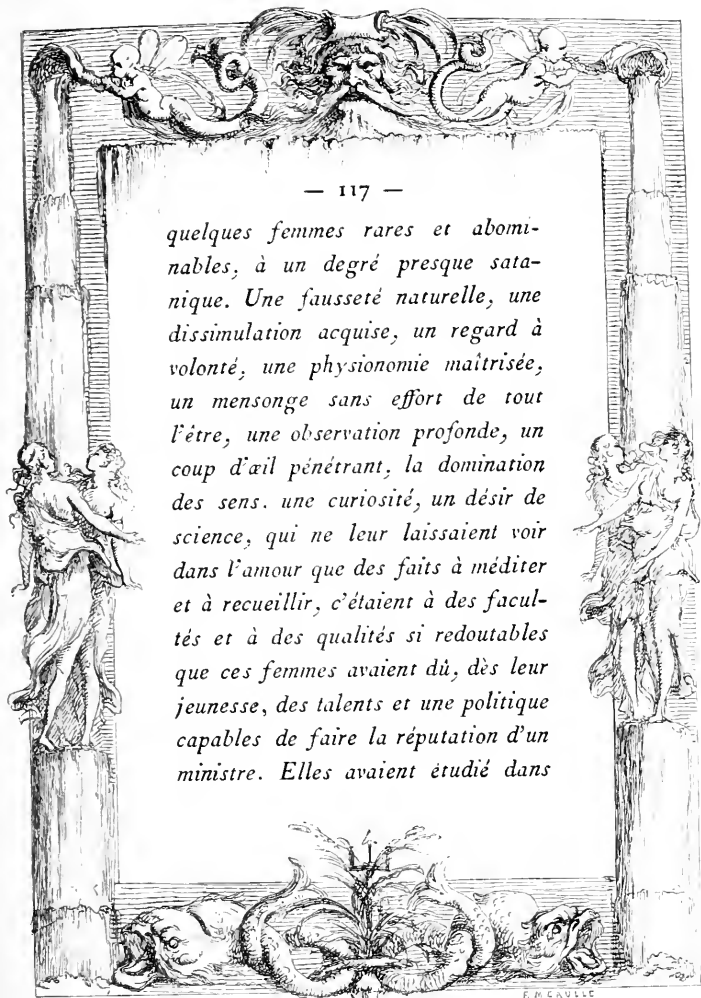 — 117 —
quelques femmes rares et abomi-
nables, à un degré presque sata-
nique. Une fausseté naturelle, une
dissimulation acquise, un regard à
volonté, une physionomie maîtrisée,
un mensonge sans effort de tout
l'être, une observation profonde, un
coup d'œil pénétrant, la domination
des sens. une curiosité, un désir de
science, qui ne leur laissaient voir
dans l'amour que des faits à méditer
et à recueillir, c'étaient à des facul-
tés et à des qualités si redoutables
que ces femmes avaient dû, dès leur
jeunesse, des talents et une politique
capables de faire la réputation d'un
ministre. Elles avaient étudié dans
F. MEAULLE